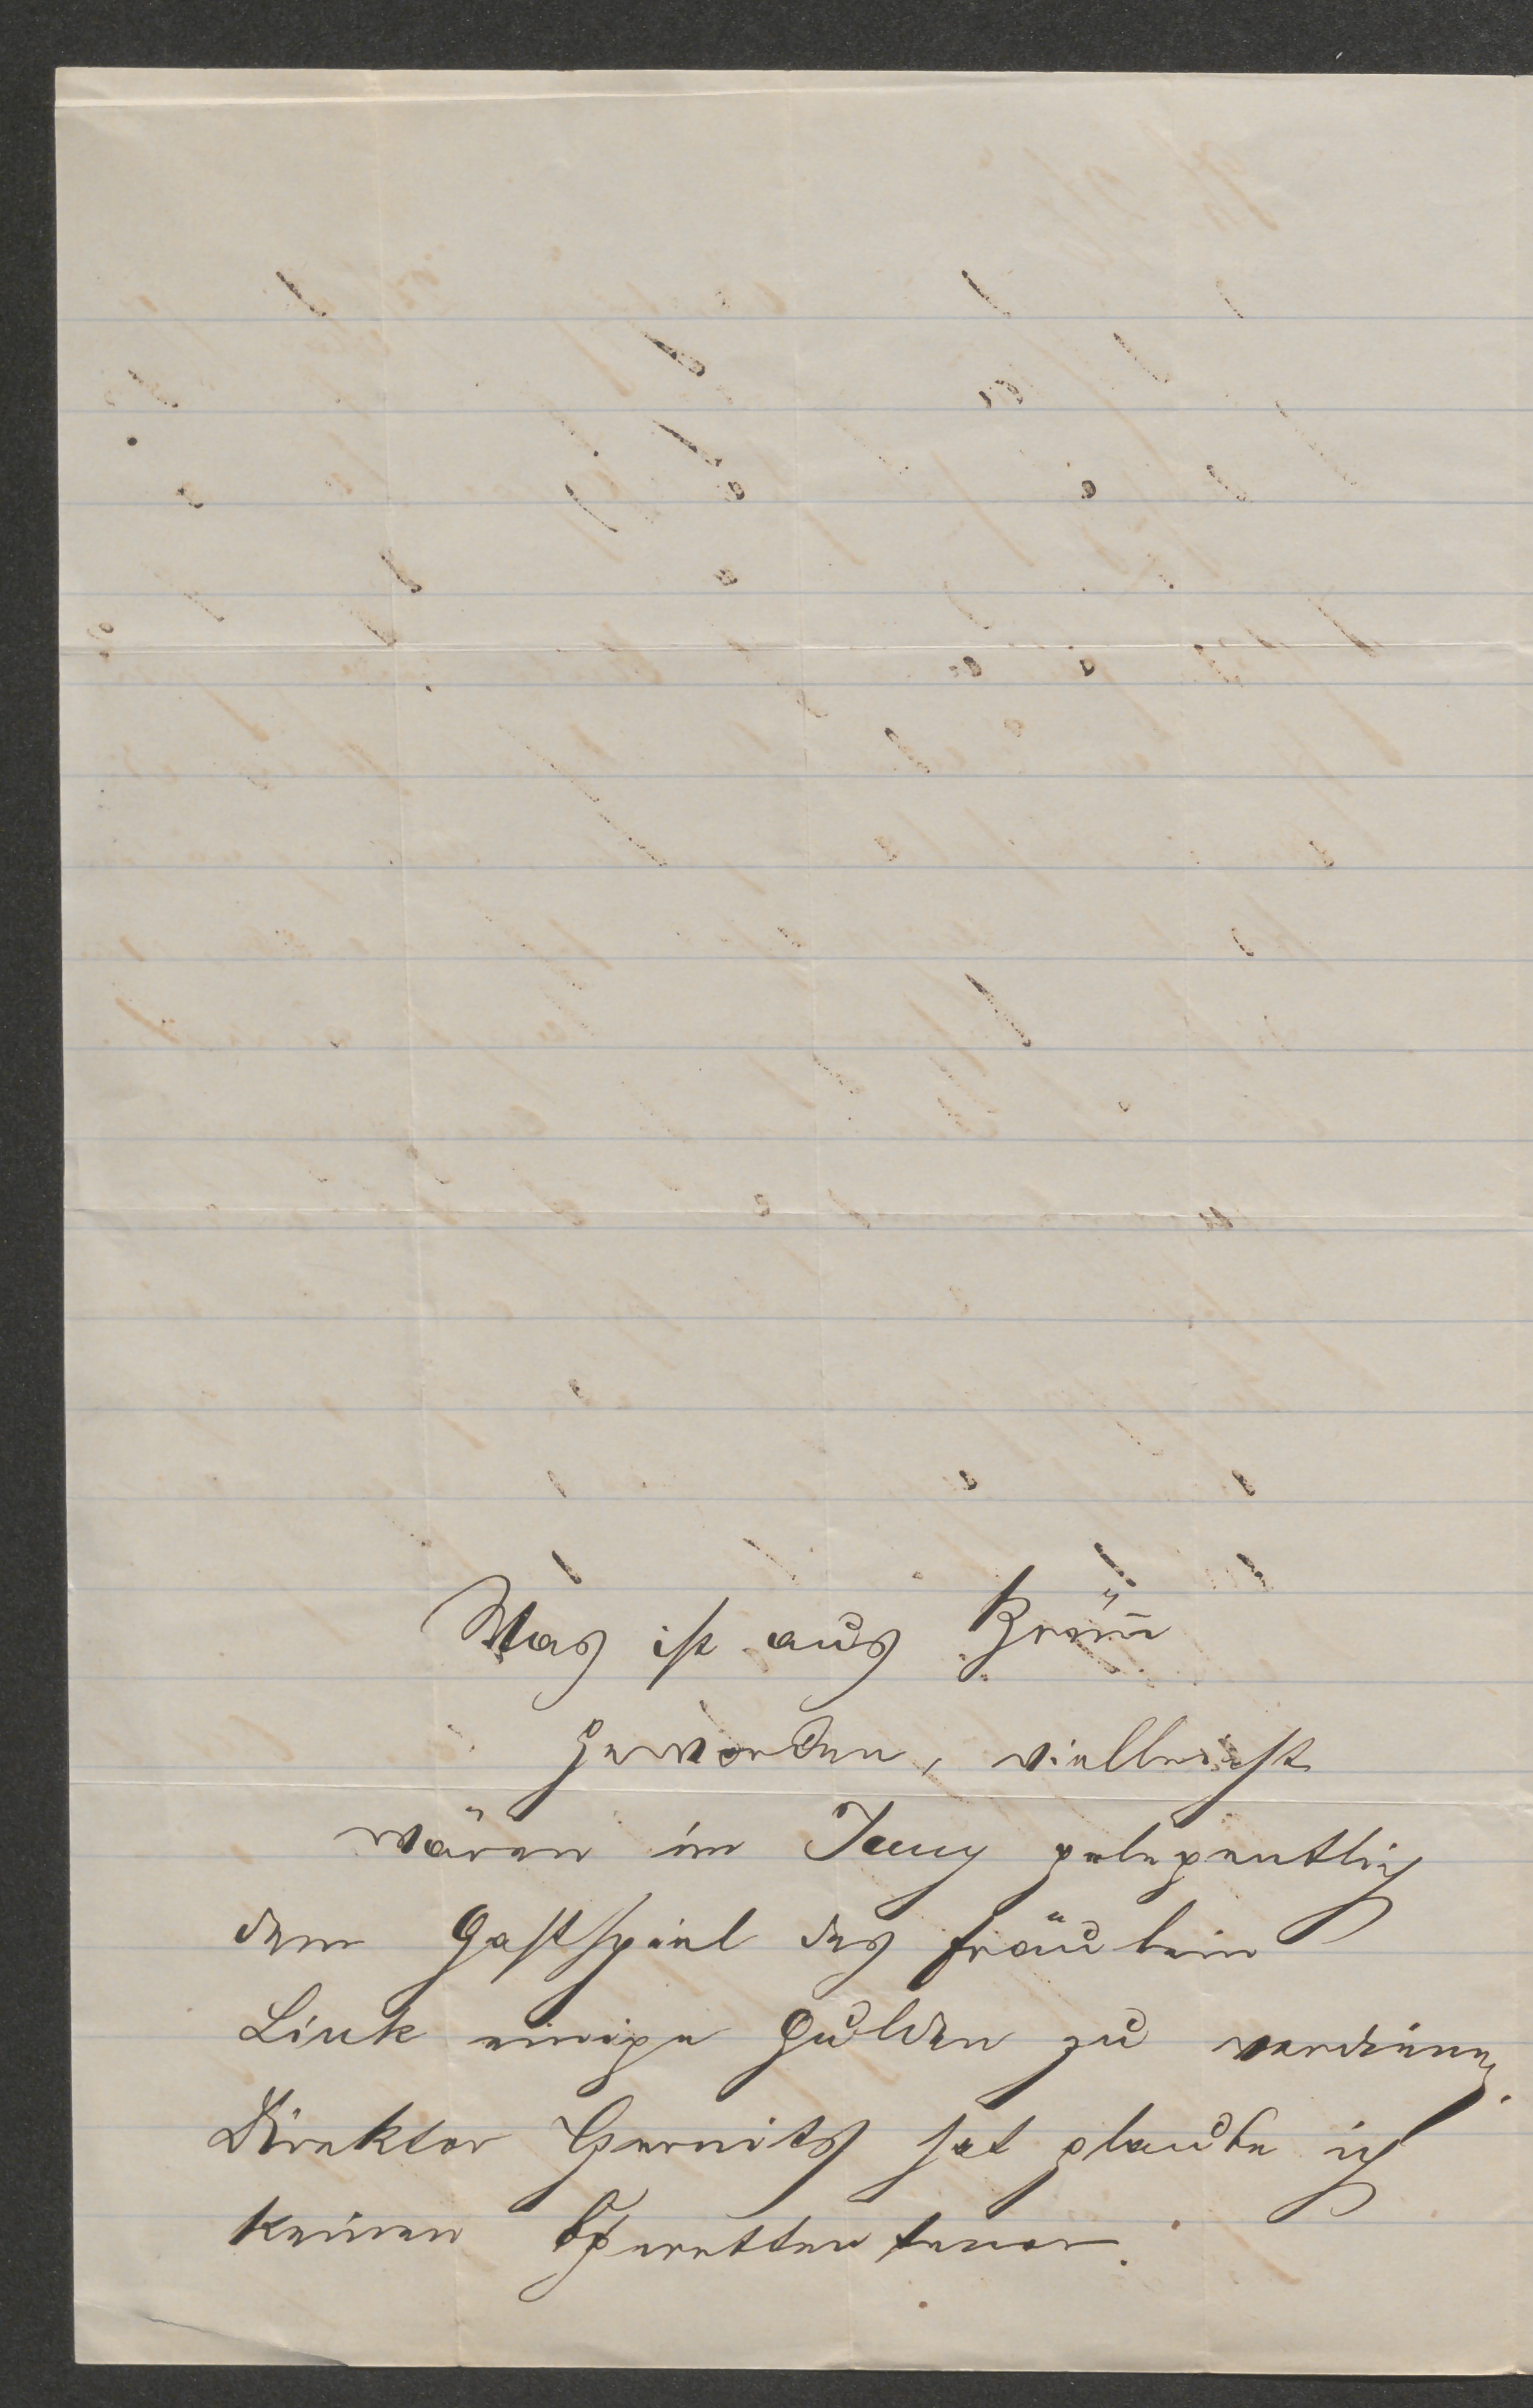 Was ist aus Brünn
geworden, vielleicht
wären im Juny gelegentlich
dem Gastspiel des Fräulein
Link einige Gulden zu verdienen.
Direktor hat glaube ich
keinen Operettentenor.